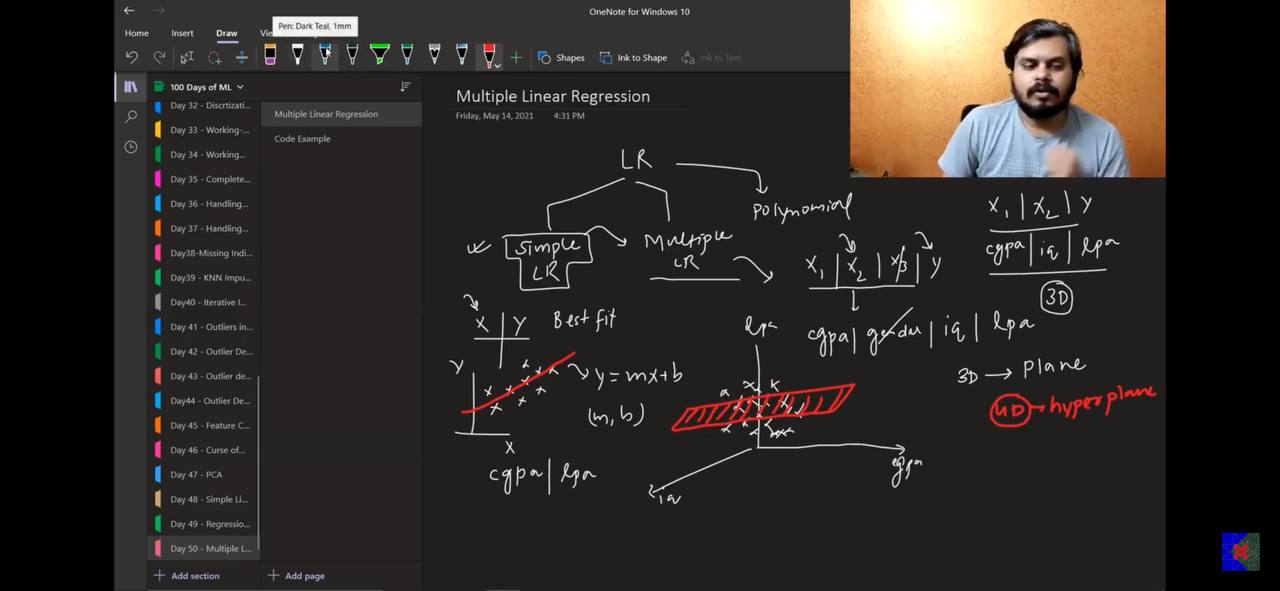 OneNote for Windows 10
Pen: Dark Teal, 1mm
Home Insert Draw
Shapes Ink to Shape Ink to Text
100 Days of ML
Day 32 - Discrtizati...
Day 33 - Working-...
Day 34 - Working...
Day 35 - Complete...
Day 36 - Handling...
Day 37 - Handling...
Day38-Missing Indi...
Day39 - KNN Impu...
Day40 - Iterative I...
Day 41 - Outliers in...
Day 42 - Outlier De...
Day 43 - Outlier de...
Day44 - Outlier De...
Day 45 - Feature C...
Day 46 - Curse of...
Day 47 - PCA
Day 48 - Simple Li...
Day 49 - Regressio...
Day 50 - Multiple L...
Add section
Multiple Linear Regression
Code Example
Add page
Multiple Linear Regression
Friday, May 14, 2021 4:31 PM
LR
Polynomial
Simple
LR
Multiple
LR
X1 | X2 | X3 | Y
X1 | X2 | Y
cgpa | iq | lpa
3D
cgpa | gender | iq | lpa
X | Y Best fit
Y
y = mx + b
(m, b)
X
cgpa | lpa
lpa
cgpa
iq
3D → plane
nD → hyperplane